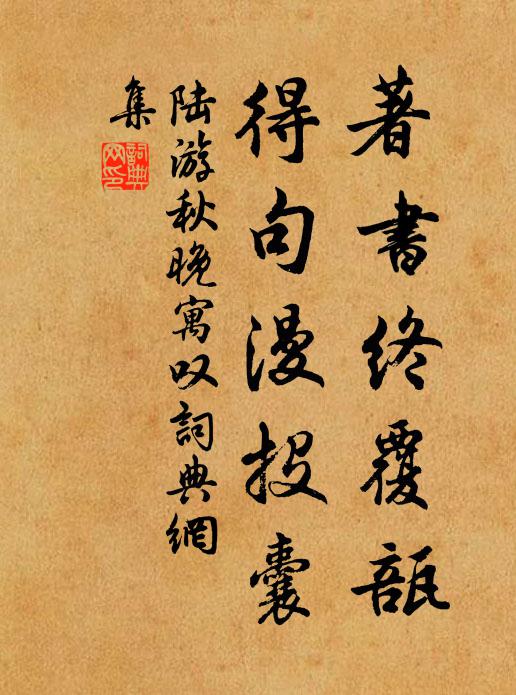 著書終覆瓿
得句漫投囊
陆游秋晚寓叹詞典網
集
詞典網印